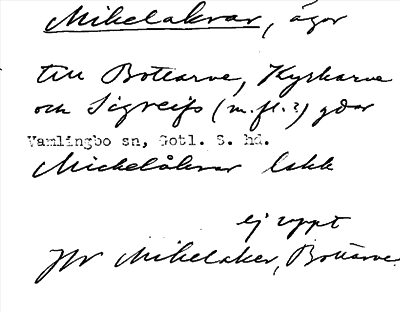 Mikelakrar, ägor
till Bottarve, Kyrkarve
och Sigreifs (m.fl.?) gdar
Vamlingbo sn, Gotl. S. hd.
Mickelåkrar lskk
ej uppt
Jfr Mikelaker, Bottarve